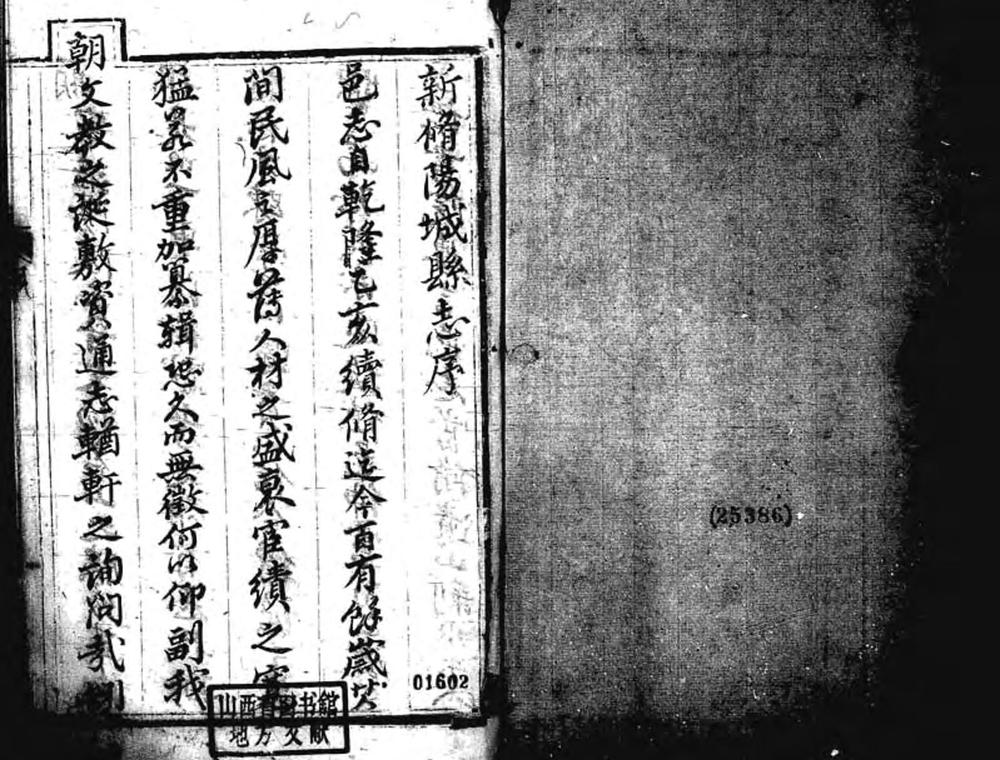 新脩陽城縣志序
邑志自乾隆乙亥續脩迄今百有餘歲其
間民風之厚薄人材之盛衰宦績之寬
猛若不重加纂輯恐久而無徵何以仰副我
朝文敎之誕敷資通志輶軒之詢問哉
01602
山西省图书館
地方文献
(25386)